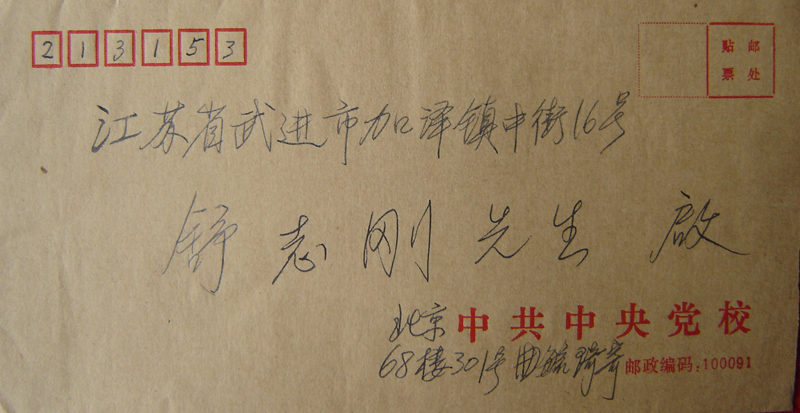 213153
贴邮
票处
江苏省武进市加泽镇中街16号
舒志刚先生 啟
北京 中共中央党校
68楼301号 曲毓琦寄
邮政编码:100091